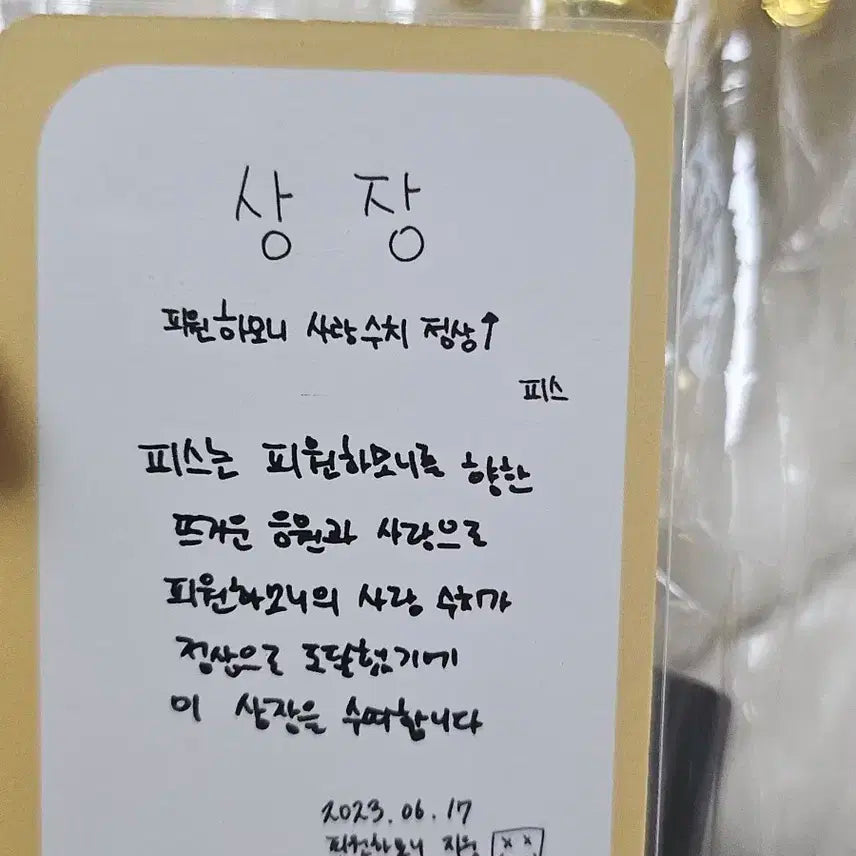 상 장
피원하모니 사랑수치 정상↑
피스
피스는 피원하모니를 향한
뜨거운 응원과 사랑으로
피원하모니의 사랑 수치가
정상으로 도달했기에
이 상장을 수여합니다
2023.06.17
피원하모니 지웅